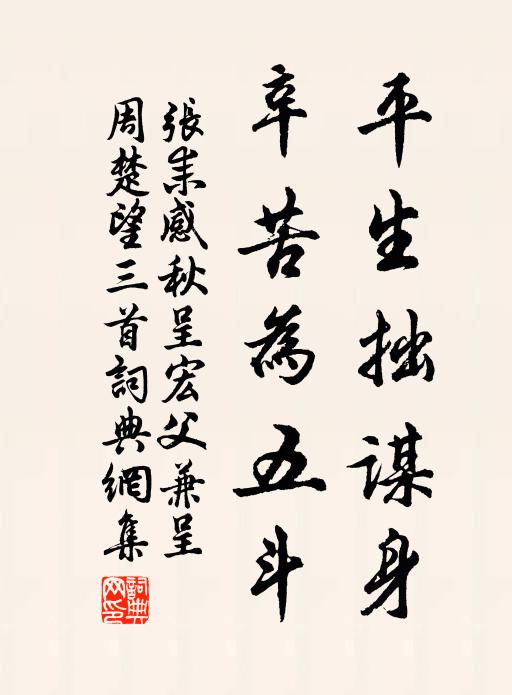 平生拙謀身
辛苦為五斗
張耒感秋呈宏父兼呈
周楚望三首詞典網集
詞典网印